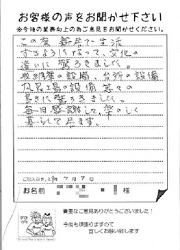 お客様の声をお聞かせ下さい
※今後の業務向上の為ご意見をお聞かせください。
この度、新居で生活
するようになって、文化の
違いに驚ろきました。
収納庫の設備、台所の設備
及風呂場の設備等々の
良さに驚ろきました。
毎日感謝して、楽しく
暮らして居ます。
お名前 様
貴重なご意見ありがとうございました!
今後も頑張りますので
宜しくお願い致します